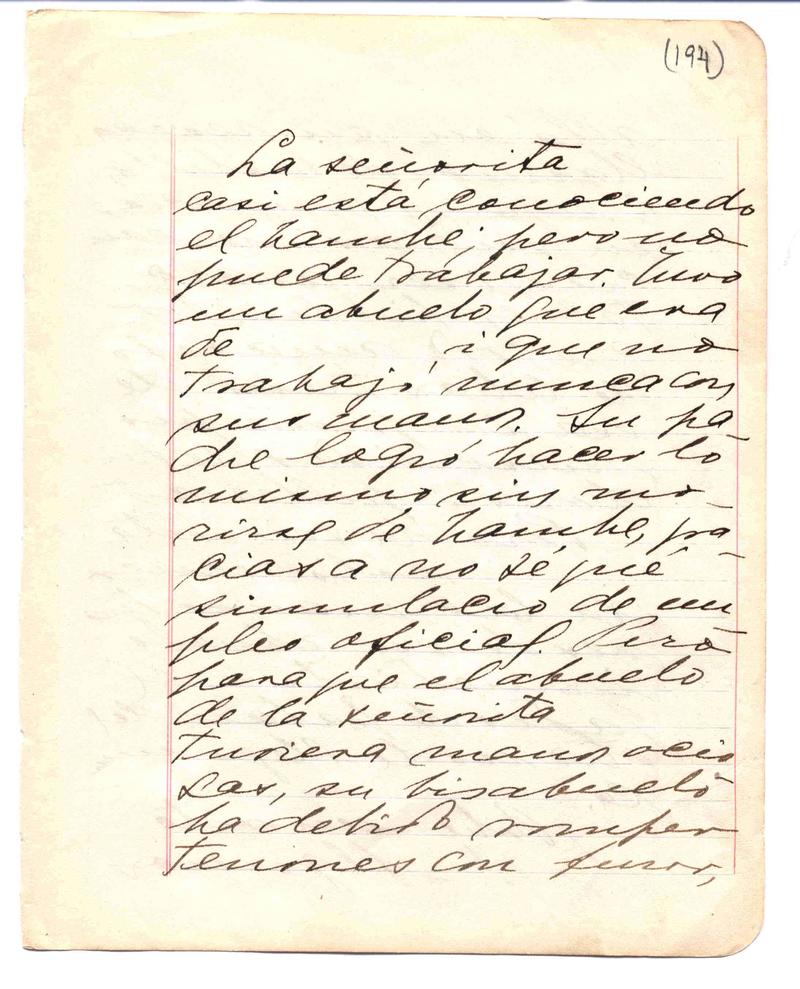 (194)
La señorita
casi está conociendo
el hambre; pero no
puede trabajar. Tuvo
un abuelo que era
de , i que no
trabajó nunca con
sus manos. Su pa
dre logró hacer lo
mismo sin mo-
rirse de hambre, gra
cias a no sé qué
simulacro de em
pleo oficial. Pero
para que el abuelo
de la señorita
tuviera manos ocio
sas, su bisabuelo
ha debido romper
terrones con furor,